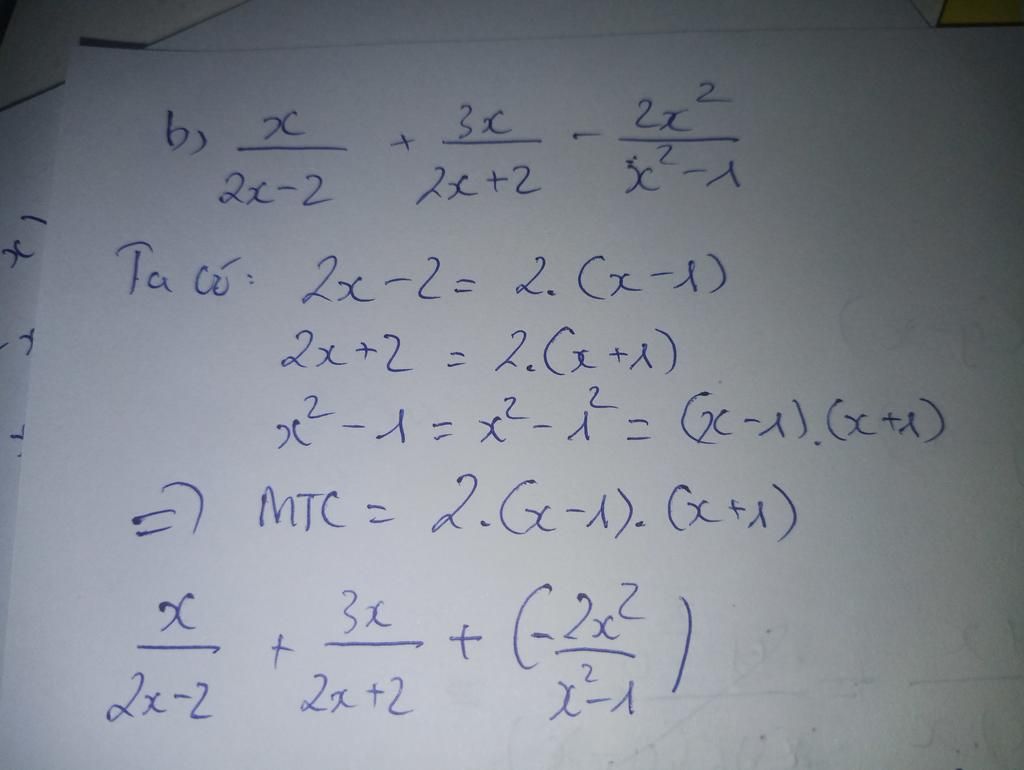 b) x/(2x-2) + 3x/(2x+2) - 2x²/(x²-1)
Ta có: 2x-2 = 2.(x-1)
2x+2 = 2.(x+1)
x²-1 = x²-1² = (x-1).(x+1)
=> MTC = 2.(x-1).(x+1)
x/(2x-2) + 3x/(2x+2) + (-2x²/(x²-1))